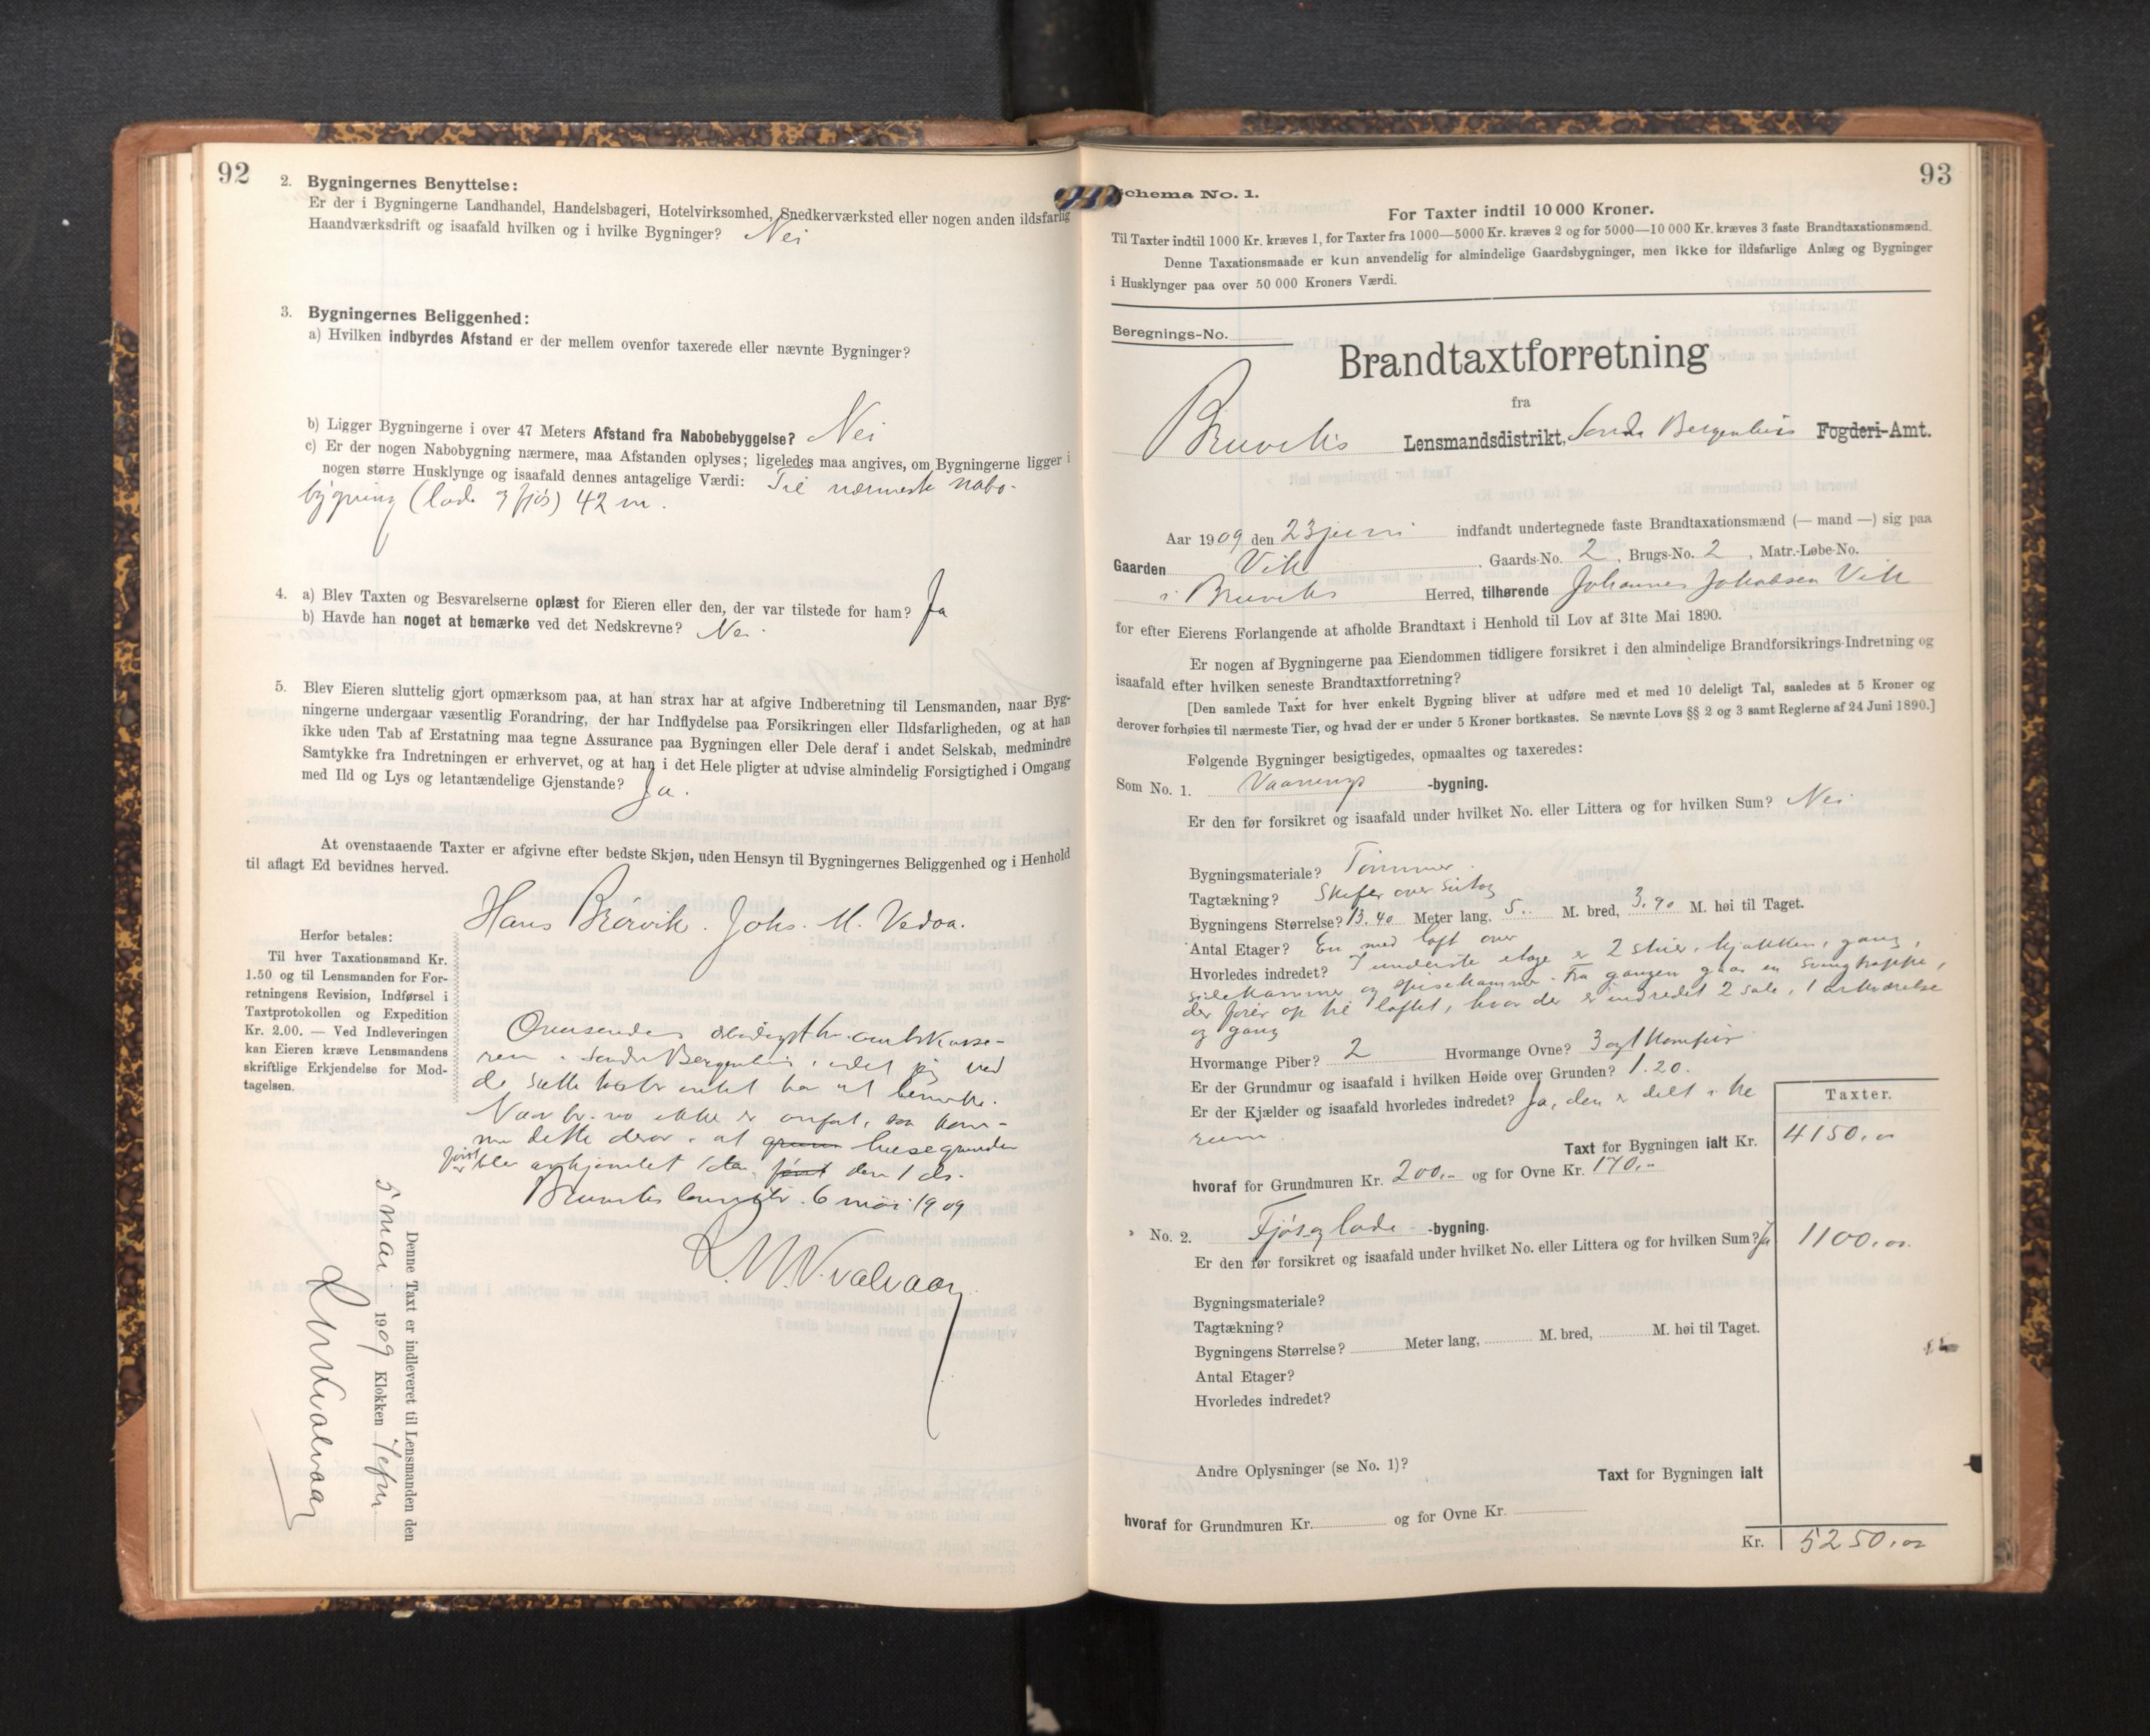 92
2. Bygningernes Benyttelse:
Er der i Bygningerne Landhandel, Handelsbageri, Hotelvirksomhed, Snedkerværksted eller nogen anden ildsfarlig
Haandværksdrift og isaafald hvilken og i hvilke Bygninger? Nei
3. Bygningernes Beliggenhed:
a) Hvilken indbyrdes Afstand er der mellem ovenfor taxerede eller nævnte Bygninger?
b) Ligger Bygningerne i over 47 Meters Afstand fra Nabobebyggelse? Nei
c) Er der nogen Nabobygning nærmere, maa Afstanden oplyses; ligeledes maa angives, om Bygningerne ligger i
nogen større Husklynge og isaafald dennes antagelige Værdi: Til nærmeste nabo-
bygning (lade & fjøs) 42 m.
4. a) Blev Taxten og Besvarelserne oplæst for Eieren eller den, der var tilstede for ham? Ja
b) Havde han noget at bemærke ved det Nedskrevne? Nei
5. Blev Eieren sluttelig gjort opmærksom paa, at han strax har at afgive Indberetning til Lensmanden, naar Byg-
ningerne undergaar væsentlig Forandring, der har Indflydelse paa Forsikringen eller Ildsfarligheden, og at han
ikke uden Tab af Erstatning maa tegne Assurance paa Bygningen eller Dele deraf i andet Selskab, medmindre
Samtykke fra Indretningen er erhvervet, og at han i det Hele pligter at udvise almindelig Forsigtighed i Omgang
med Ild og Lys og letantændelige Gjenstande? Ja.
At ovenstaaende Taxter er afgivne efter bedste Skjøn, uden Hensyn til Bygningernes Beliggenhed og i Henhold
til aflagt Ed bevidnes herved.
Hans Rørvik. Johs. M. Vedaa.
Herfor betales:
Til hver Taxationsmand Kr.
1.50 og til Lensmanden for For-
retningens Revision, Indførsel i
Taxtprotokollen og Expedition
Kr. 2.00. — Ved Indleveringen
kan Eieren kræve Lensmandens
skriftlige Erkjendelse for Mod-
tagelsen.
Oversendes hr. amtskasse-
ren i Søndre Bergenhus, idet jeg ved
de satte takster intet har at bemerke.
Naar br. no ikke er anført, saa kom-
mer dette derav, at husegrunden
først blev den 1 ds.
Bruviks 6 mai 1909
Denne Taxt er indleveret til Lensmanden den
5 mai 1909 Klokken 7 efm
93
Schema No. 1.
For Taxter indtil 10 000 Kroner.
Til Taxter indtil 1000 Kr. kræves 1, for Taxter fra 1000—5000 Kr. kræves 2 og for 5000—10 000 Kr. kræves 3 faste Brandtaxationsmænd.
Denne Taxationsmaade er kun anvendelig for almindelige Gaardsbygninger, men ikke for ildsfarlige Anlæg og Bygninger
i Husklynger paa over 50 000 Kroners Værdi.
Beregnings-No.
Brandtaxtforretning
fra
Bruviks Lensmandsdistrikt, Søndre Bergenhus Fogderi-Amt.
Aar 1909 den 23 juni indfandt undertegnede faste Brandtaxationsmænd (— mand —) sig paa
Gaarden Vik, Gaards-No. 2, Brugs-No. 2, Matr.-Løbe-No.
i Bruviks Herred, tilhørende Johannes Jakobsen Vik
for efter Eierens Forlangende at afholde Brandtaxt i Henhold til Lov af 31te Mai 1890.
Er nogen af Bygningerne paa Eiendommen tidligere forsikret i den almindelige Brandforsikrings-Indretning og
isaafald efter hvilken seneste Brandtaxtforretning?
[Den samlede Taxt for hver enkelt Bygning bliver at udføre med et med 10 deleligt Tal, saaledes at 5 Kroner og
derover forhøies til nærmeste Tier, og hvad der er under 5 Kroner bortkastes. Se nævnte Lovs §§ 2 og 3 samt Reglerne af 24 Juni 1890.]
Følgende Bygninger besigtigedes, opmaaltes og taxeredes:
Som No. 1. Vaanings -bygning.
Er den før forsikret og isaafald under hvilket No. eller Littera og for hvilken Sum? Nei
Bygningsmateriale? Tømmer.
Tagtækning? Skifer over sutag
Bygningens Størrelse? 13.40 Meter lang. 5.. M. bred, 3.90 M. høi til Taget.
Antal Etager? En med loft over
Hvorledes indredet? I underste etage er 2 stuer, kjøkken, gang,
sidekammer og spisekammer. Fra gangen gaar en svingtrappe,
der fører op til loftet, hvor der er indredet 2 sale, 1 arkværelse
og gang
Hvormange Piber? 2 Hvormange Ovne? 3 og 1 komfur
Er der Grundmur og isaafald i hvilken Høide over Grunden? 1.20.
Er der Kjælder og isaafald hvorledes indredet? Ja, den er delt i tre
rum.
Taxter.
Taxt for Bygningen ialt Kr. 4150,00
hvoraf for Grundmuren Kr. 200.- og for Ovne Kr. 170.-
No. 2. Fjøs og lade -bygning.
Er den før forsikret og isaafald under hvilket No. eller Littera og for hvilken Sum? Ja 1100,00.
Bygningsmateriale?
Tagtækning?
Bygningens Størrelse? Meter lang, M. bred, M. høi til Taget.
Antal Etager?
Hvorledes indredet?
Andre Oplysninger (se No. 1)?
Taxt for Bygningen ialt
hvoraf for Grundmuren Kr. og for Ovne Kr.
Kr. 5250,00